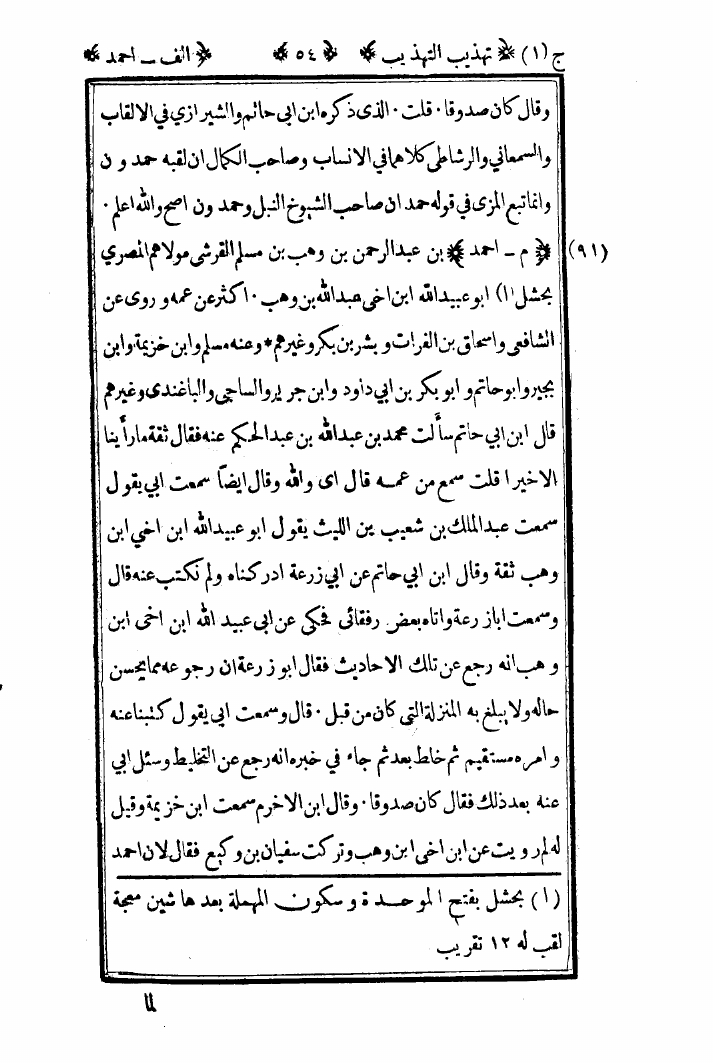 ج (١) ﴿ تهذيب التهذيب ﴾ ﴿ ٥٤ ﴾ ﴿ الف ـ احمد ﴾
وقال كان صدوقا · قلت · الذى ذكره ابن ابى حاتم والشيرازي في الالقاب
والسمعاني والرشاطى كلاهما في الانساب وصاحب الكمال ان لقبه حمدون
وانما تبع المزى في قوله حمدان صاحب الشيوخ النبل وحمدون اصح والله اعلم ·
(٩١) ﴿ م ـ احمد ﴾ بن عبدالرحمن بن وهب بن مسلم القرشى مولاهم المصري
بحشل (١) ابو عبيدالله ابن اخى عبدالله بن وهب · اكثر عن عمه و روى عن
الشافعى واسحاق بن الفرات و بشر بن بكر وغيرهم * وعنه مسلم وابن خزيمة وابن
بجير وابو حاتم و ابو بكر بن ابي داود وابن جرير والساجى والباغندى وغيرهم
قال ابن ابي حاتم سألت محمد بن عبدالله بن عبدالحكم عنه فقال ثقة ما رأينا
الا خيرا قلت سمع من عمه قال اى والله وقال ايضاً سمعت ابي يقول
سمعت عبدالملك بن شعيب بن الليث يقول ابو عبيدالله ابن اخي ابن
وهب ثقة وقال ابن ابي حاتم عن ابي زرعة ادركناه ولم نكتب عنه قال
وسمعت ابا زرعة واتاه بعض رفقائى فحكى عن ابى عبيد الله ابن اخى ابن
وهب انه رجع عن تلك الاحاديث فقال ابو زرعة ان رجوعه مما يحسن
حاله ولا يبلغ به المنزلة التى كان من قبل · قال وسمعت ابى يقول كتبنا عنه
و امره مستقيم ثم خلط بعد ثم جاء في خبره انه رجع عن التخليط وسئل ابي
عنه بعد ذلك فقال كان صدوقا · وقال ابن الاخرم سمعت ابن خزيمة وقيل
له لم رويت عن ابن اخى ابن وهب وتركت سفيان بن وكيع فقال لان احمد
(١) بحشل بفتح الموحدة وسكون المهملة بعدها شين معجمة
لقب له ١٢ تقريب
لما